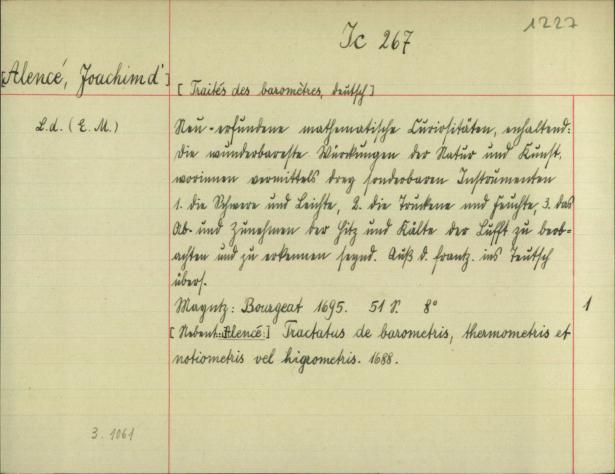 1227
Ic 267
[Alencé, Joachim d']
[Traités des baromètres, deutsch]
L.d. (E. M.)
Neu-erfundene mathematische Curiositäten, enhaltend:
die wunderbareste Würckungen der Natur und Kunst,
worinnen vermittels drey sonderbaren Instrumenten
1. die Schwere und Leichte, 2. die Truckene und Feuchte, 3. das
Ab- und Zunehmen der Hitz und Kälte der Lufft zu beob-
achten und zu erkennen seynd. Auß d. frantz. ins Teutsch
übers.
Mayntz: Bourgeat 1695. 51 S. 8°
1
[Nebent.: Alencé:] Tractatus de barometris, thermometris et
notiometris vel higrometris. 1688.
3. 1061